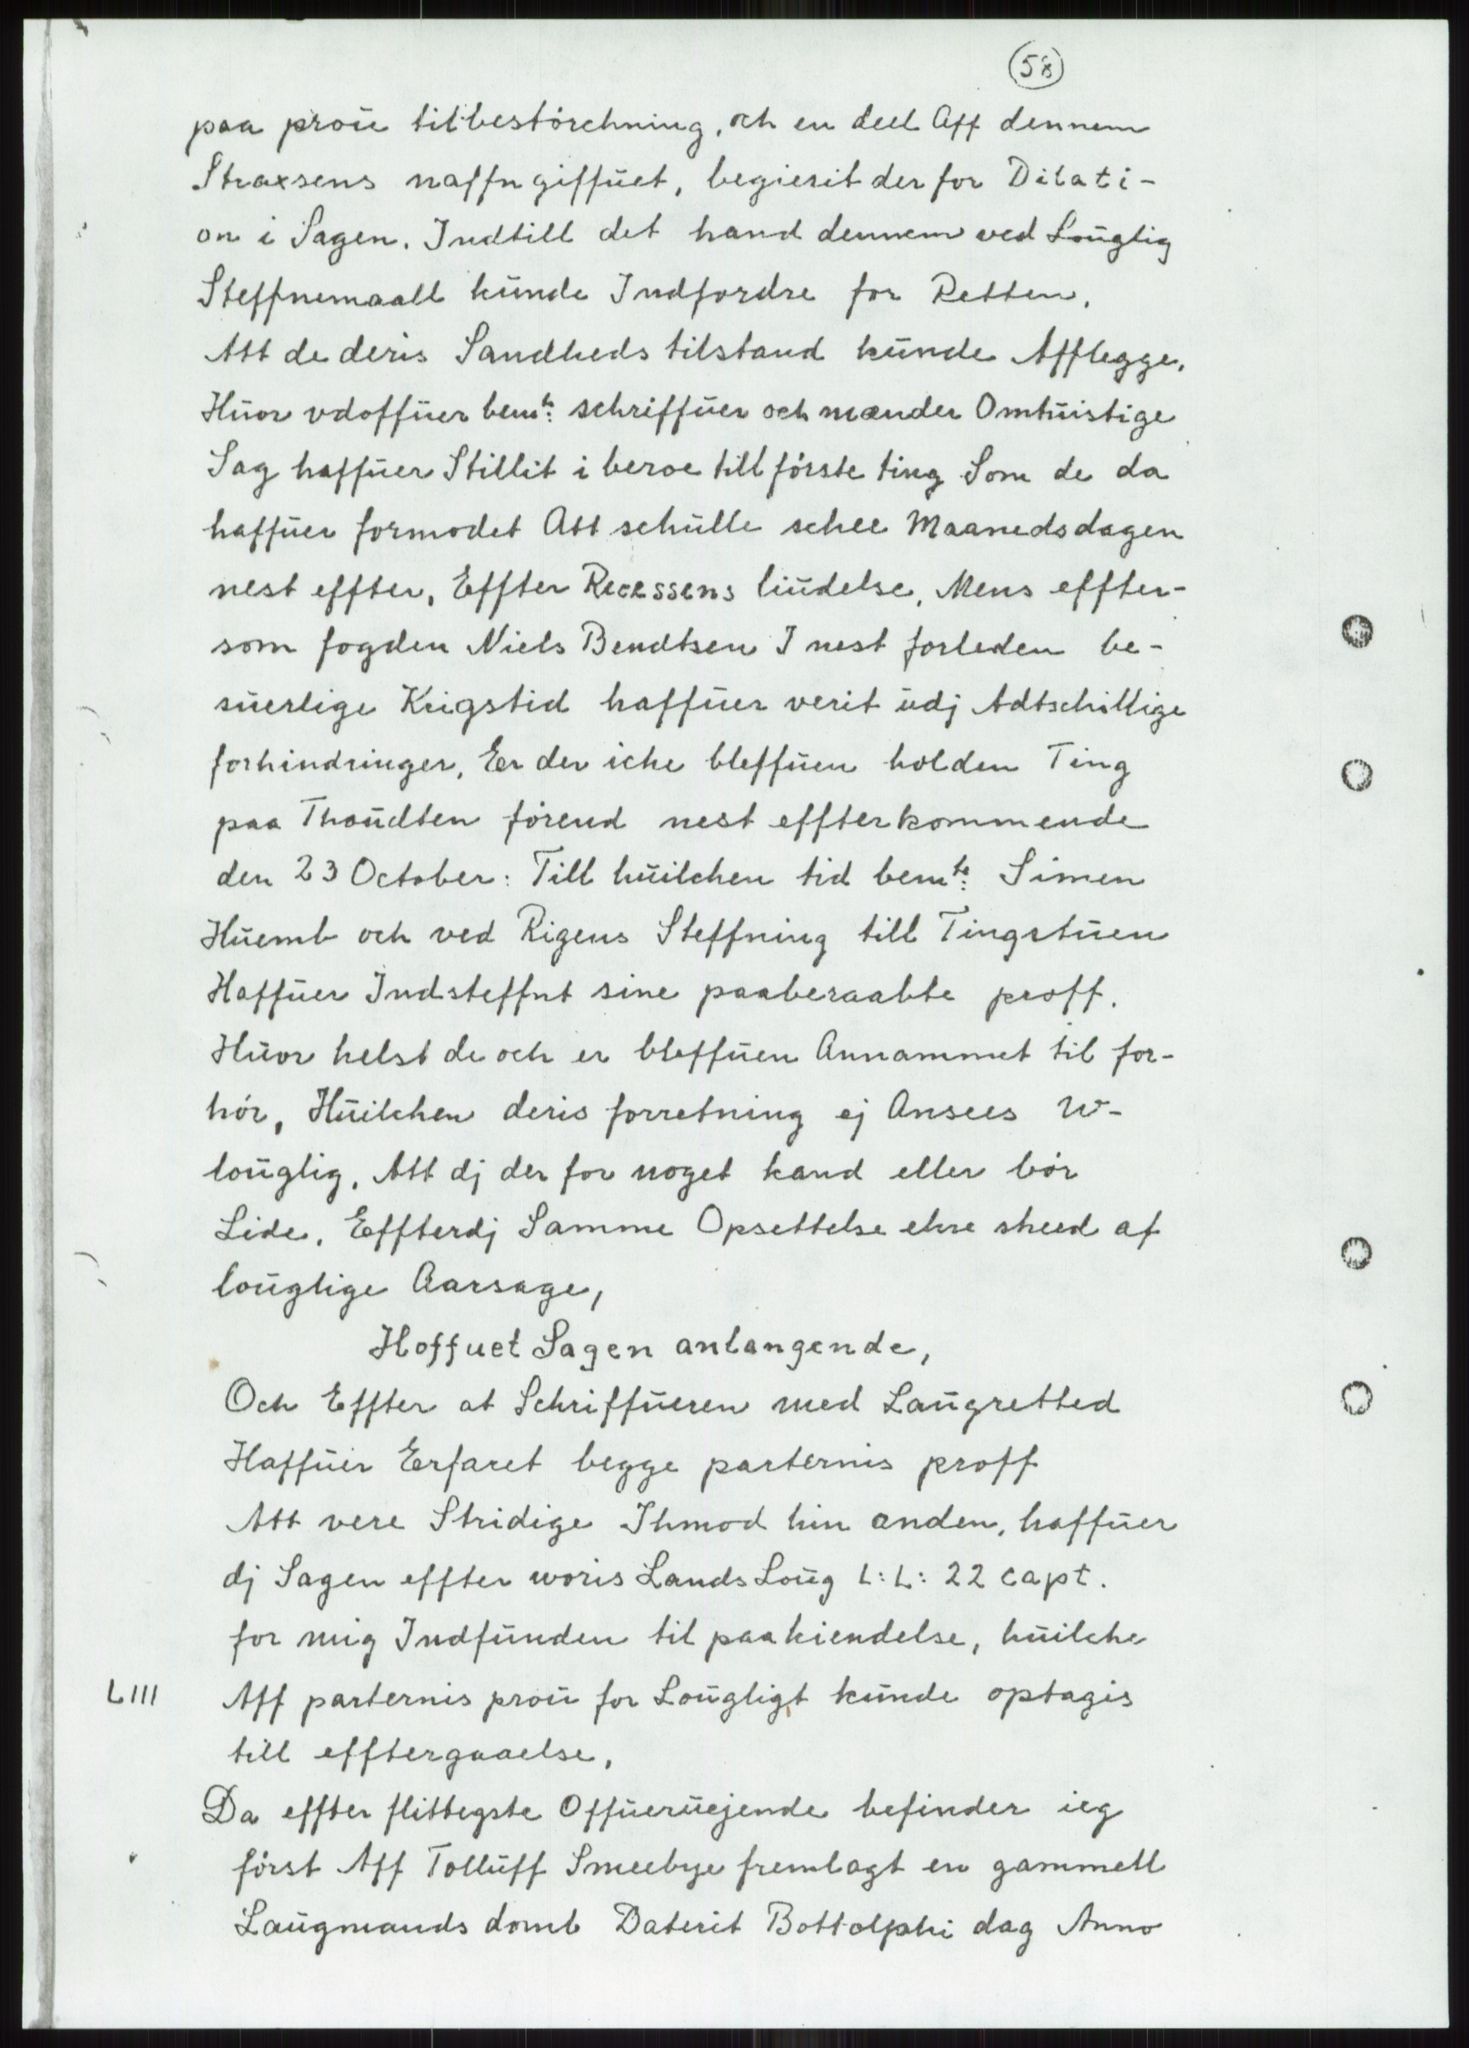 58
paa proŭ tilbestórchning, och en deel Aff dennem
Straxsens naffn giffŭet, begierit der for Dilati-
on i Sagen. Indtill det hand dennem ved Loŭglig
Steffnemaall kŭnde Indfordre for Retten.
Att de deris Sandheds tilstand kŭnde Afflegge.
Hŭor vdoffŭer bemte: schriffŭer och mænder Omtŭistige
Sag haffŭer Stillit i beroe till fórste ting Som de da
haffŭer formodet Att schŭlle schee Maanedsdagen
nest effter, Effter Recessens liŭdelse, Mens effter-
som fogden Niels Bendtsen I nest forleden be-
sŭerlige Krigstid haffŭer verit ŭdj Adtschillige
forhindringer, Er der iche bleffŭen holden Ting
paa Thoŭdten fórend nest effterkommende
den 23 October: Till hŭilchen tid bemte: Simen
Hŭemb och ved Rigens Steffning till Tingstŭen
Haffŭer Indsteffnt sine paaberaabte proff.
Hŭor helst de och er bleffŭen Annammet til for-
hór, Hŭilchen deris forretning ej Ansees W-
loŭglig, Att dj der for noget kand eller bór
Lide, Effterdj Samme Opsettelse ehre skeed af
loŭglige Aarsage,
Hoffuet Sagen anlangende,
Och Effter at Schriffŭeren med Laŭgretted
Haffŭer Erfaret begge parternis proff
Att vere Stridige Ihmod hin anden, haffŭer
dj Sagen effter woris Lands Loŭg L: L: 22 capt.
for mig Indfŭnden til paakiendelse, hŭilche
LIII Aff parternis proŭ for Loŭgligt kŭnde optagis
till efftergaaelse.
Da effter flittegste Offŭerŭejende befinder ieg
fórst Aff Tollŭff Smeebye fremlagt en gammell
Laŭgmands domb Daterit Bottolphi dag Anno